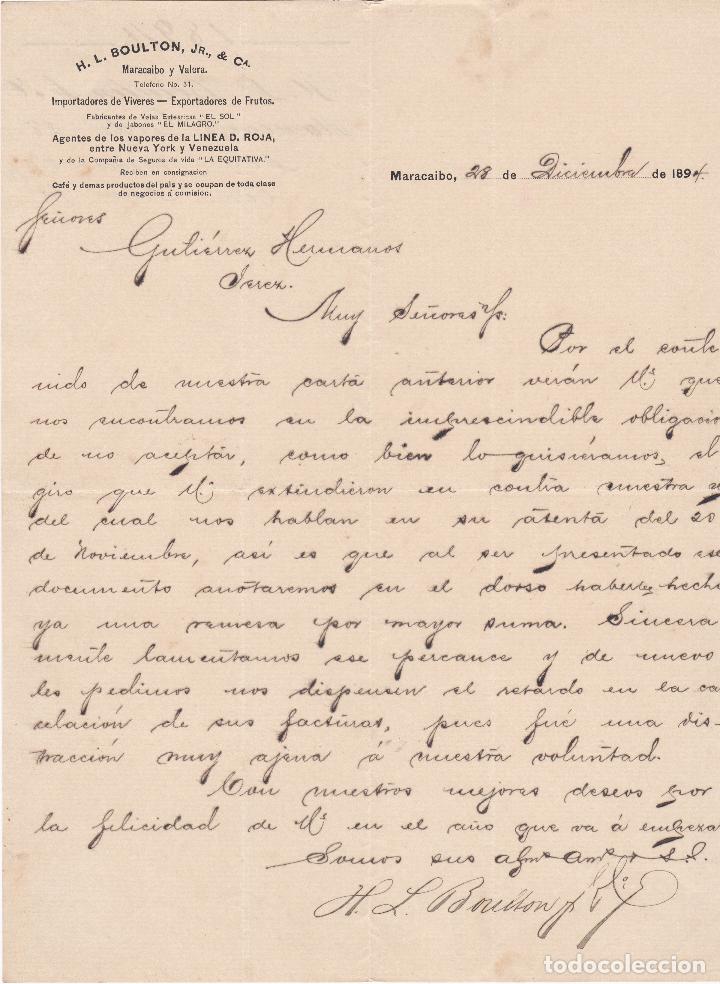 H. L. BOULTON, JR., & CA.
Maracaibo y Valera.
Telefono No. 31.
Importadores de Viveres — Exportadores de Frutos.
Fabricantes de Velas Estearicas "EL SOL"
y de jabones "EL MILAGRO."
Agentes de los vapores de la LINEA D. ROJA,
entre Nueva York y Venezuela
y de la Compañia de Seguros de vida "LA EQUITATIVA."
Reciben en consignacion
Café y demas productos del pais y se ocupan de toda clase
de negocios á comision.
Maracaibo, 28 de Diciembre de 1894.
Señores
Gutiérrez Hermanos
Jerez.
Muy Señores
Por el conte
nido de nuestra carta anterior verán Vs. que
nos encontramos en la imprescindible obligacio
de no aceptar, como bien lo quisiéramos, el
giro que Vs. extendieron en contra nuestra y
del cual nos hablan en su atenta del 20
de Noviembre, así es que al ser presentado ese
documento anotaremos en el dorso haberles hecho
ya una remesa por mayor suma. Sincera
mente lamentamos ese percance y de nuevo
les pedimos nos dispensen el retardo en la can
celación de sus facturas, pues fué una dis-
tracción muy ajena á nuestra voluntad.
Con nuestros mejores deseos por
la felicidad de Vs. en el año que va á empezar
Somos sus afmos. amos. y S.S.
H. L. Boulton jr & Co
todocoleccion.net